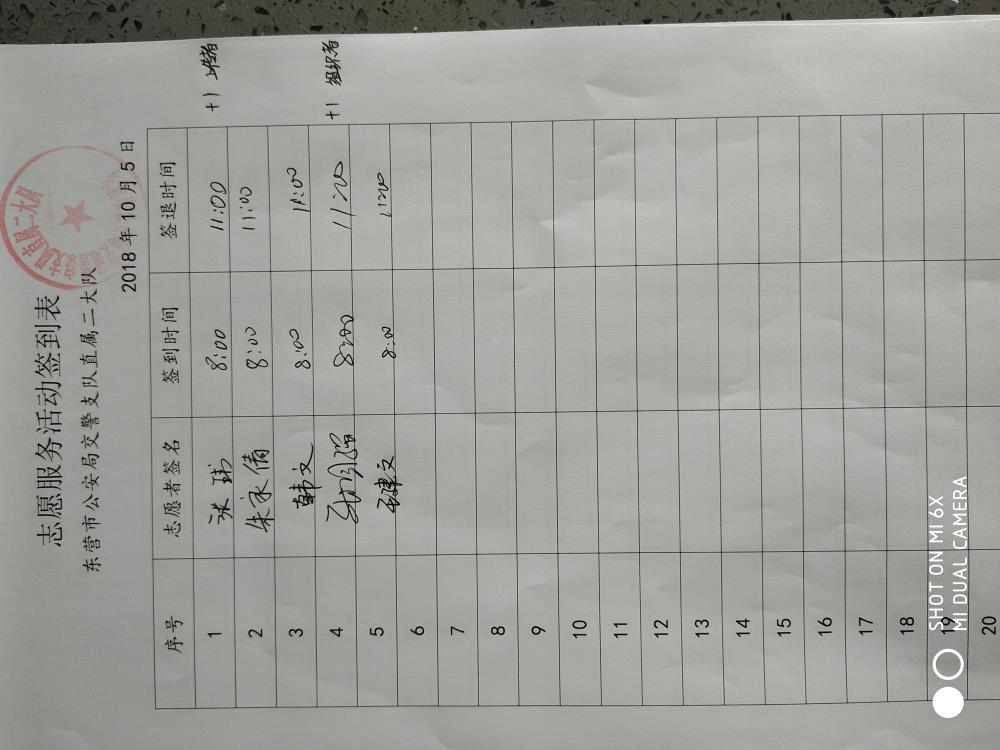 志愿服务活动签到表
东营市公安局交警支队直属二大队
2018年10月5日
序号 志愿者签名 签到时间 签退时间
1 张玮 8:00 11:00 +1 上传者
2 朱永倩 8:00 11:00
3 韩文 8:00 11:00
4 8:00 11:00 +1 组织者
5 王建文 8:00 11:00
6
7
8
9
10
11
12
13
14
15
16
17
18
19
20
SHOT ON MI 6X
MI DUAL CAMERA